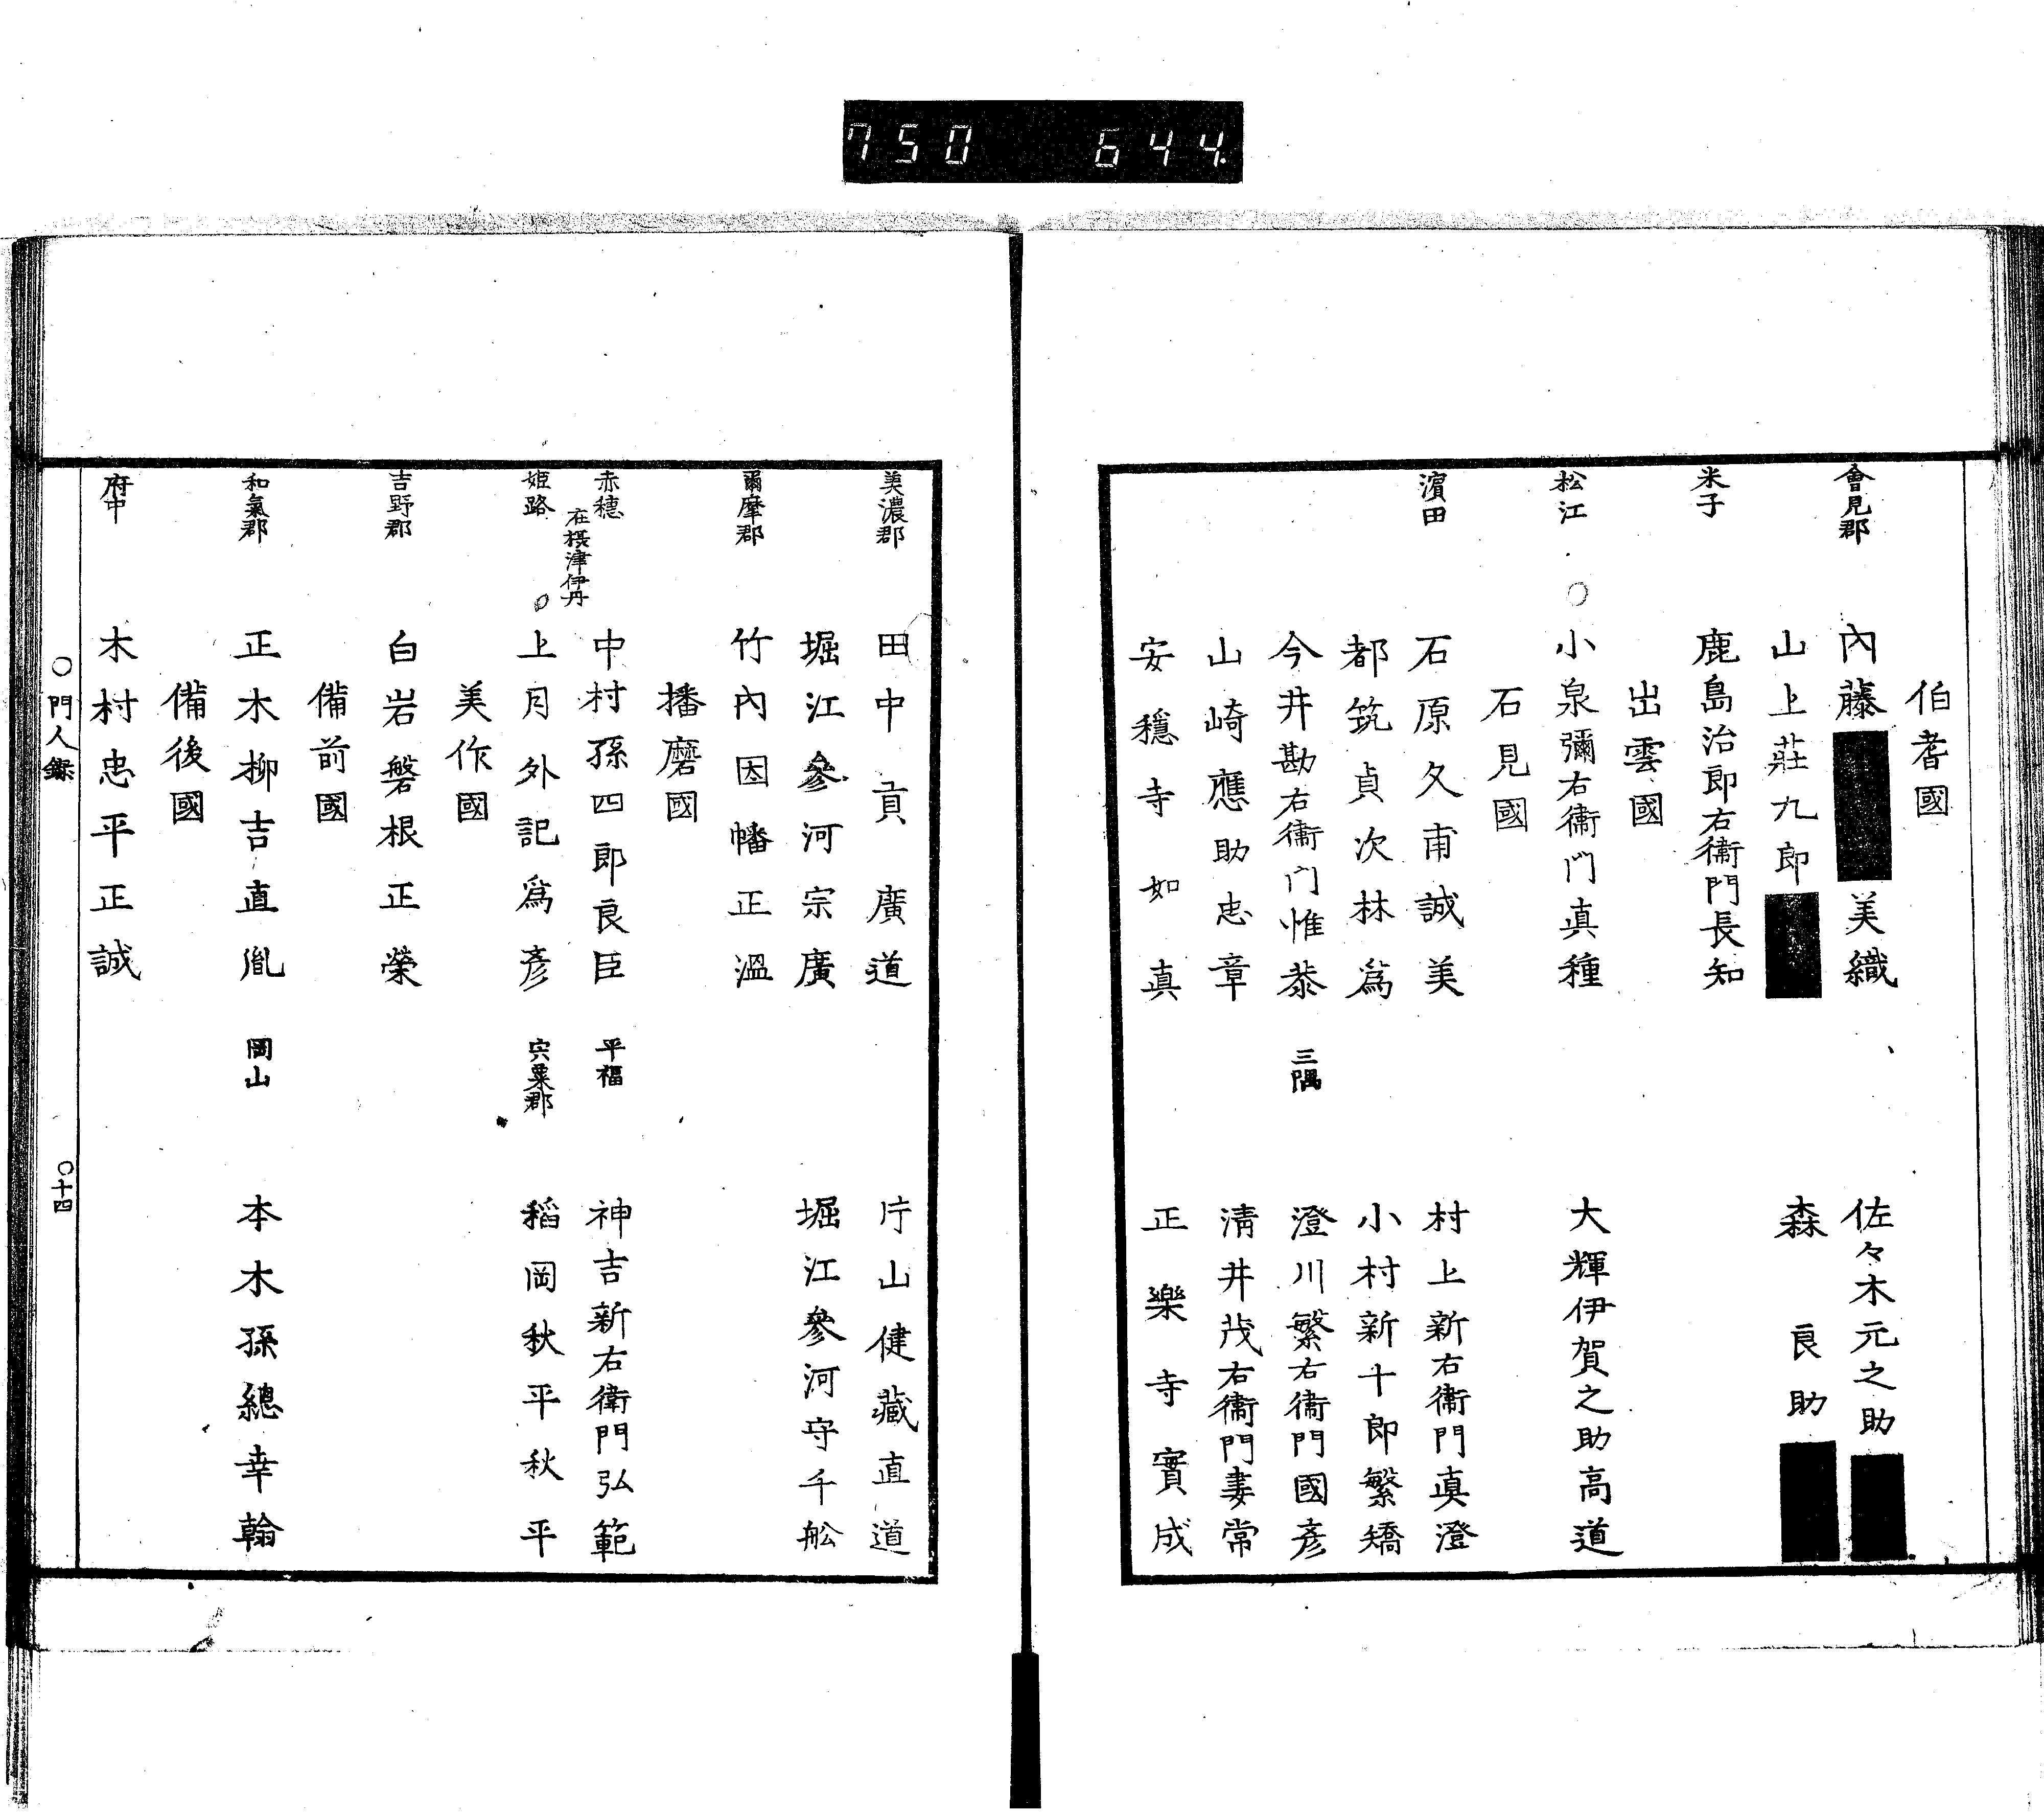 750 644.
伯耆國
會見郡 內藤 美織 佐々木元之助
山上莊九郎 森良助
米子 鹿島治郎右衞門長知
出雲國
松江 ○小泉彌右衞門真種 大輝伊賀之助高道
石見國
濵田 石原久甫誠美 村上新右衞門真澄
都筑貞次林爲 小村新十郎繁矯
今井勘右衞門惟恭 三隅 澄川繁右衞門國彥
山崎應助忠章 淸井茂右衞門妻常
安穩寺如真 正樂寺實成
美濃郡 田中貢廣道 片山健藏直道
堀江參河宗廣 堀江參河守千舩
爾摩郡 竹內因幡正溫
播磨國
赤穗 在摂津伊丹 中村孫四郎良臣 平福 神吉新右衞門弘範
姬路 ○上月外記爲彥 宍粟郡 稻岡秋平秋平
美作國
吉野郡 白岩磐根正榮
備前國
和氣郡 正木柳吉直胤 岡山 本木孫總幸翰
備後國
府中 木村忠平正誠
○門人錄 ○十四